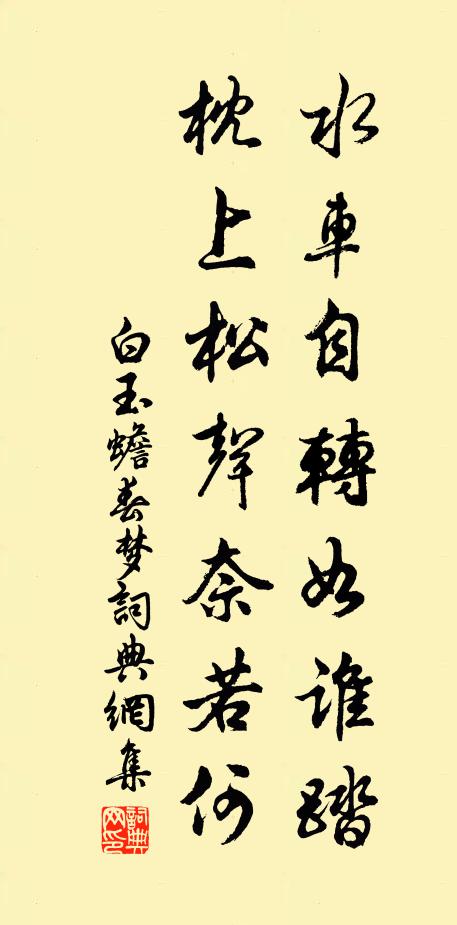 水車自轉如誰踏
枕上松聲奈若何
白玉蟾春梦詞典網集
詞典網印